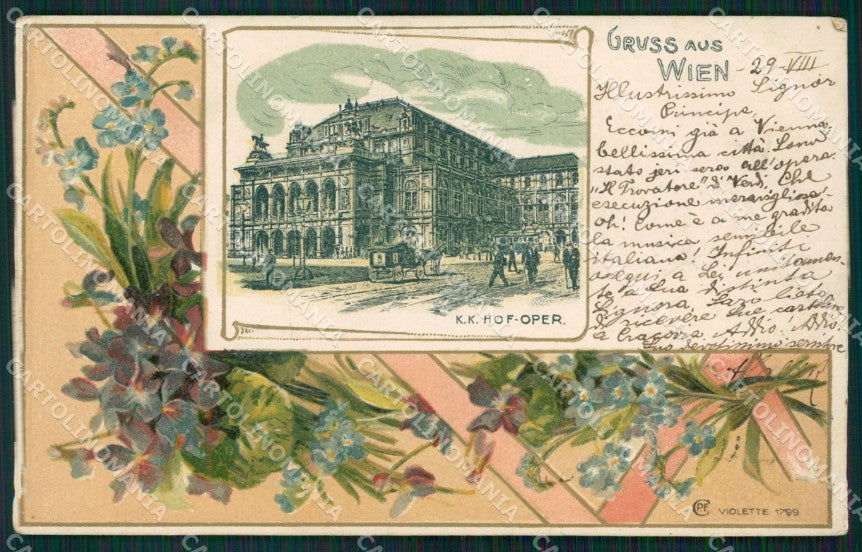 GRUSS AUS
WIEN - 29 VIII
Illustrissimo Signor
Principe,
Eccomi già a Vienna,
bellissima città. Sono
stato jeri sera all'opera
"Il Trovatore" di Verdi. Che
esecuzione meravigliosa!
oh! Come è a me gradita
la musica
italiana! Infiniti
ossequi a Lei unitamen-
te a Sua distinta
Signora. Sarò lieto
di ricevere sue cartoline
a Cracovia. Addio. Addio.
Suo devotissimo sempre
K.K. HOF-OPER.
CPF
VIOLETTE 1799
CARTOLINOMANIA